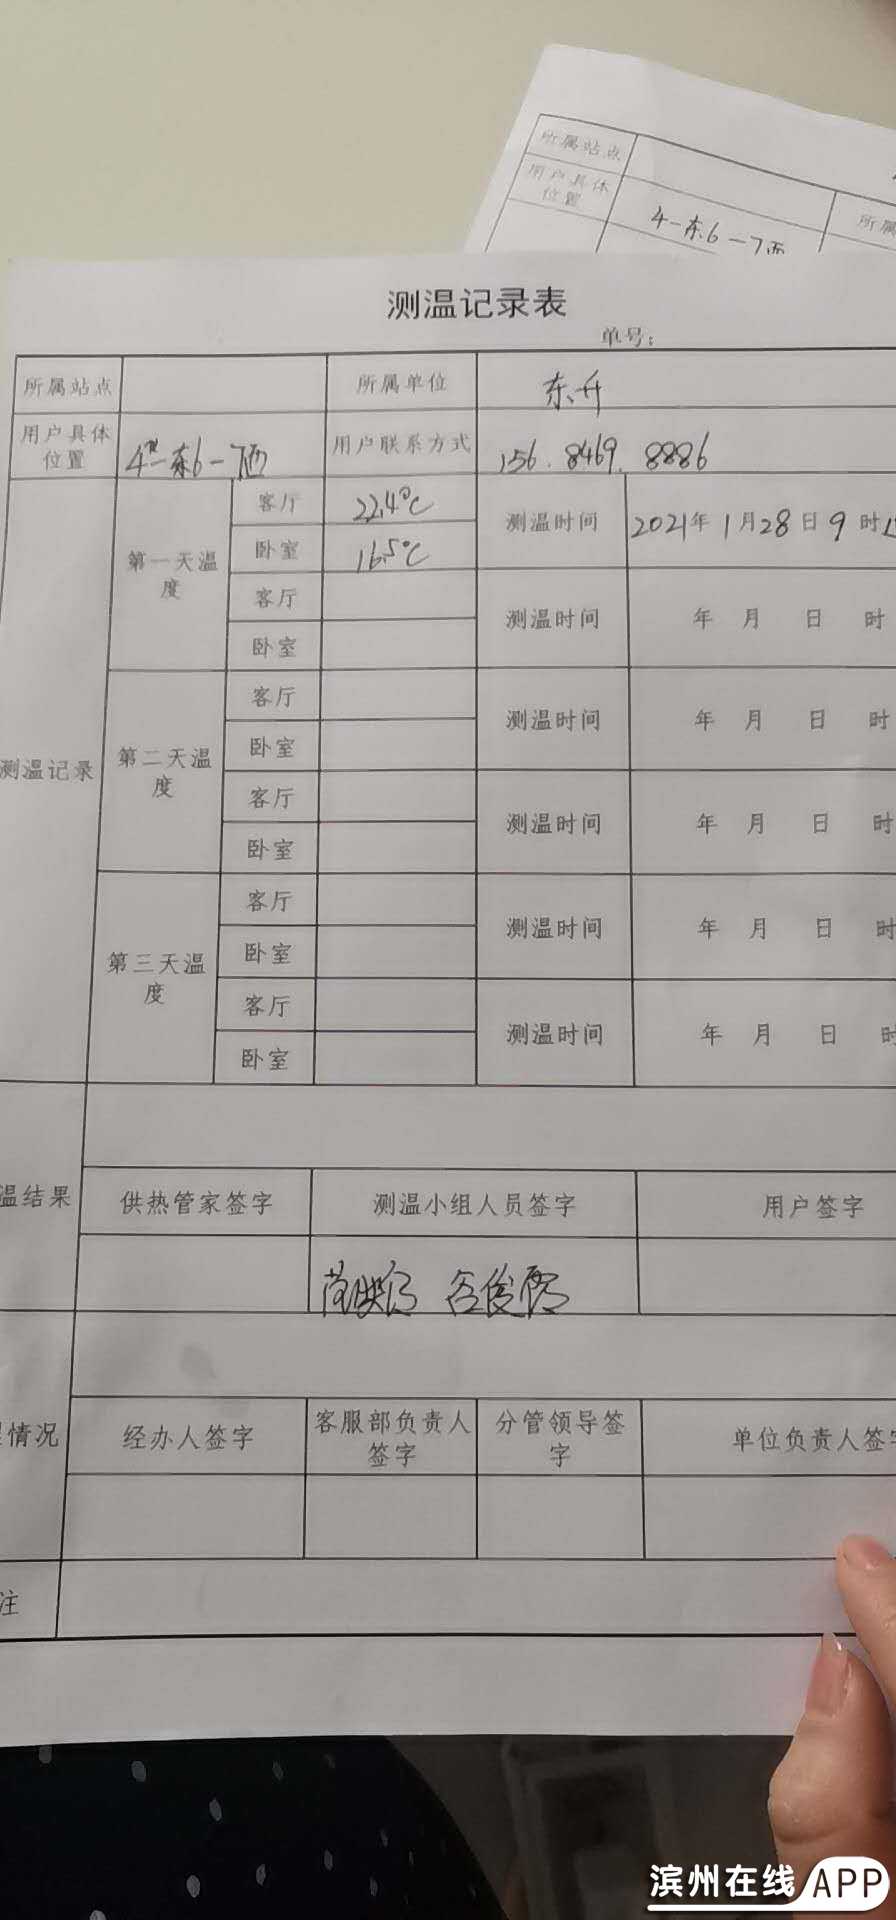 所属站点
用户具体
位置
4-东6-7西
所属
测温记录表
单号：
所属站点 所属单位 东升
用户具体位置 4#-东6-7西 用户联系方式 156.8469.8886
测温记录
第一天温度
客厅 22.4℃ 测温时间 2021年1月28日9时
卧室 16.5℃
客厅 测温时间 年 月 日 时
卧室
第二天温度
客厅 测温时间 年 月 日 时
卧室
客厅 测温时间 年 月 日 时
卧室
第三天温度
客厅 测温时间 年 月 日 时
卧室
客厅 测温时间 年 月 日 时
卧室
温结果
供热管家签字 测温小组人员签字 用户签字
情况
经办人签字 客服部负责人签字 分管领导签字 单位负责人签字
注
滨州在线APP